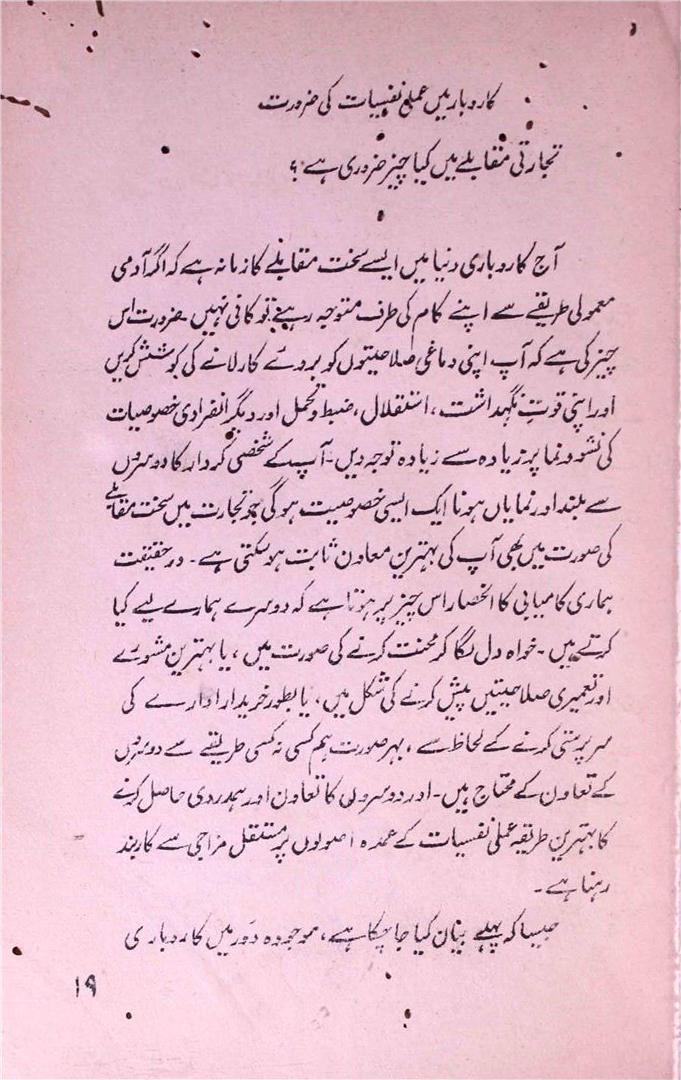 کاروبار میں عملی نفسیات کی ضرورت
تجارتی مقابلے میں کیا چیز ضروری ہے؟
آج کاروباری دنیا میں ایسے سخت مقابلے کا زمانہ ہے کہ اگر آدمی
معمولی طریقے سے اپنے کام کی طرف متوجہ رہے تو کافی نہیں۔ ضرورت اس
چیز کی ہے کہ آپ اپنی دماغی صلاحیتوں کو بروئے کار لانے کی کوشش کریں
اور اپنی قوتِ نگہداشت، استقلال، ضبط و تحمل اور دیگر انفرادی خصوصیات
کی نشوونما پر زیادہ سے زیادہ توجہ دیں۔ آپ کے شخصی کردار کا دوسروں
سے بلند اور نمایاں ہونا ایک ایسی خصوصیت ہوگی جو تجارت میں سخت مقابلے
کی صورت میں بھی آپ کی بہترین معاون ثابت ہوسکتی ہے۔ درحقیقت
ہماری کامیابی کا انحصار اس چیز پر ہوتا ہے کہ دوسرے ہمارے لیے کیا
کرتے ہیں۔ خواہ دل لگا کر محنت کرنے کی صورت میں، یا بہترین مشورے
اور تعمیری صلاحیتیں پیش کرنے کی شکل میں، یا بطور خریدار ادارے کی
سرپرستی کرنے کے لحاظ سے، بہرصورت ہم کسی نہ کسی طریقے سے دوسروں
کے تعاون کے محتاج ہیں۔ اور دوسروں کا تعاون اور ہمدردی حاصل کرنے
کا بہترین طریقہ عملی نفسیات کے عمدہ اصولوں پر مستقل مزاجی سے کاربند
رہنا ہے۔
جیسا کہ پہلے بیان کیا جا چکا ہے، موجودہ دَور میں کاروباری
۱۹